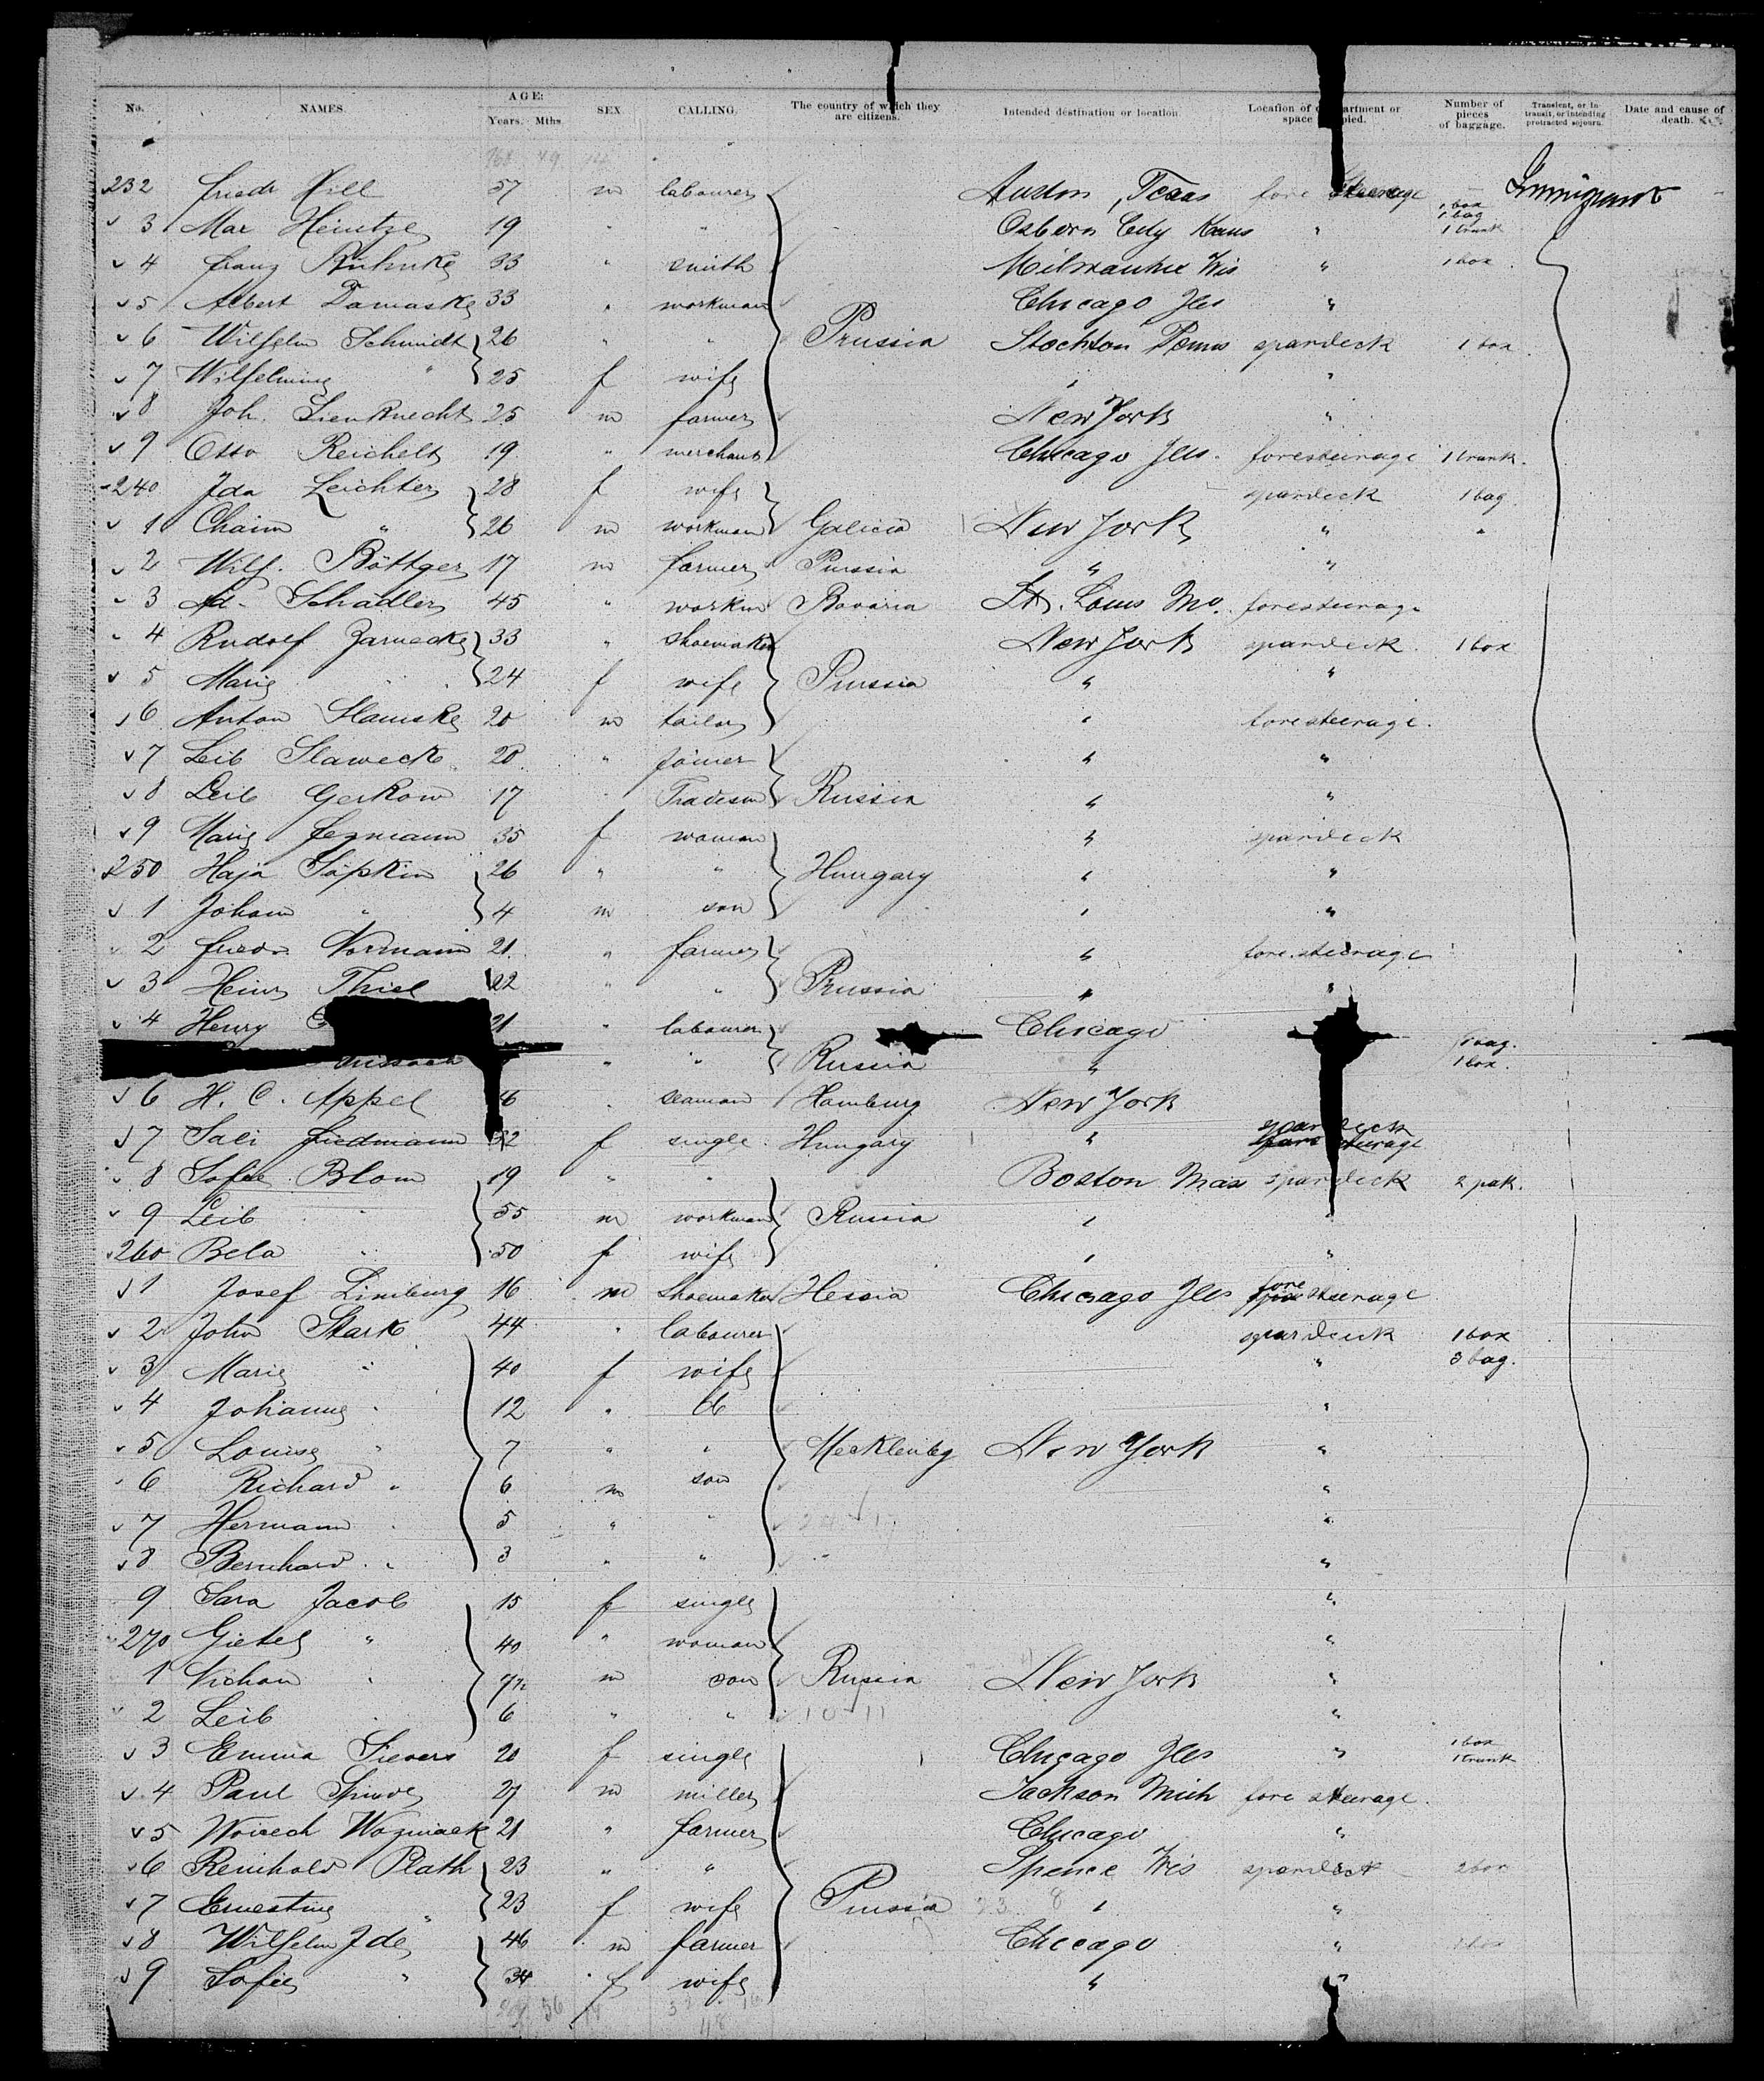 No. NAMES. AGE: Years. Mths. SEX. CALLING. The country of which they are citizens. Intended destination or location. Location of compartment or space occupied. Number of pieces of baggage. Transient, or in transit, or intending protracted sojourn. Date and cause of death.
232 Friedr Hill 57 m labourer Austin, Texas fore steerage Immigrant
3 Max Heintze 19 " " Osborn City Kans " 1 box 1 bag 1 trunk
4 Franz 33 " smith Milwaukee Wis " 1 box
5 Albert Damaske 33 " workman Chicago Jlls "
6 Wilhelm Schmidt 26 " " Prussia Stockton spardeck 1 box
7 Wilhelmine " 25 f wife " "
8 Joh. Lienknecht 25 m farmer New York "
9 Otto Reichelt 19 " merchant Chicago Jlls. foresteerage 1 trunk.
240 Ida Leichter 28 f wife spardeck 1 bag.
1 Chaim " 26 m workman Galicia New York " "
2 Wilh. Böttger 17 m farmer Prussia " "
3 Ad. Schädler 45 " workm Bavaria St. Louis Mo. foresteerage
4 Rudolf Jarnecke 33 " shoemaker New York spardeck. 1 box
5 Marie " 24 f wife Prussia " "
6 Anton Slamske 20 m tailor " foresteerage.
7 Leib Slaweck 20 " joiner " "
8 Leib Gerkow 17 " Tradesm Russia " "
9 Marie 35 f woman " spardeck
250 Haja Sopkin 26 " " Hungary " "
1 Johann " 4 m son " "
2 Friedr. Normann 21 " farmer " fore steerage
3 Heinr Thiel 22 " " Prussia " "
4 Henry 21 " labourer Chicago
" " Russia " 1 bag. 1 box.
6 H. C. Appel seaman Hamburg New York
7 Sali Friedmann 22 f single Hungary " spardeck
8 Sofie Blom 19 " " Boston Mass spardeck 2 pak.
9 Leib " 55 m workman Russia " "
260 Bela " 50 f wife " "
1 Josef Limburg 16 m Shoemaker Hessia Chicago Jlls fore steerage
2 John Stark 44 " labourer spardeck 1 box
3 Marie " 40 f wife " 3 bag.
4 Johanne " 12 " "
5 Louise " 7 " " Mecklenbg New York "
6 Richard " 6 m son "
7 Hermann " 5 " " "
8 Bernhard " 3 " " "
9 Sara Jacob 15 f single "
270 Gietel " 40 " woman "
1 Nichan " m son Russia New York "
2 Leib 6 " " "
3 Emma Sievers 20 f single Chicago Jlls " 1 box 1 trunk
4 Paul m miller Jackson Mich fore steerage.
5 Woicech Wozniack 21 " farmer Chicago "
6 Reinhold Plath 23 " " Spence Wis spardeck 2 box
7 Ernestine " 23 f wife Prussia " "
8 Wilhelm Jde 46 m farmer Chicago " 1 box
9 Sofie " 34 f wife " "